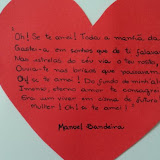 "Oh! Se te amei! Toda a manhã da
Gastei-a em sonhos que de ti falavam
Nas estrelas do céu via o teu rosto,
Ouvia-te nas brisas que passavam
Oh! se te amei! Do fundo de minh'al
Imenso, eterno amor te consagrei
Era um viver em cisma de futuro
Mulher! Oh! se te amei!"
Manoel Bandeira